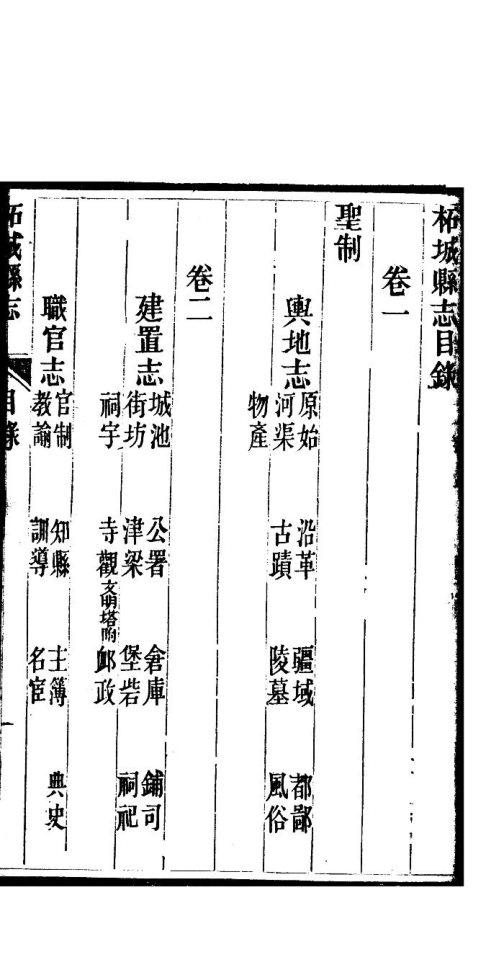 柘城縣志目錄
卷一
聖制
輿地志
原始 沿革 疆域 都鄙
河渠 古蹟 陵墓 風俗
物產
卷二
建置志
城池 公署 倉庫 鋪司
街坊 津梁 堡砦 祠祀
祠宇 寺觀 郵政
職官志
官制 知縣 主簿 典史
教諭 訓導 名宦
柘城縣志 目錄 一